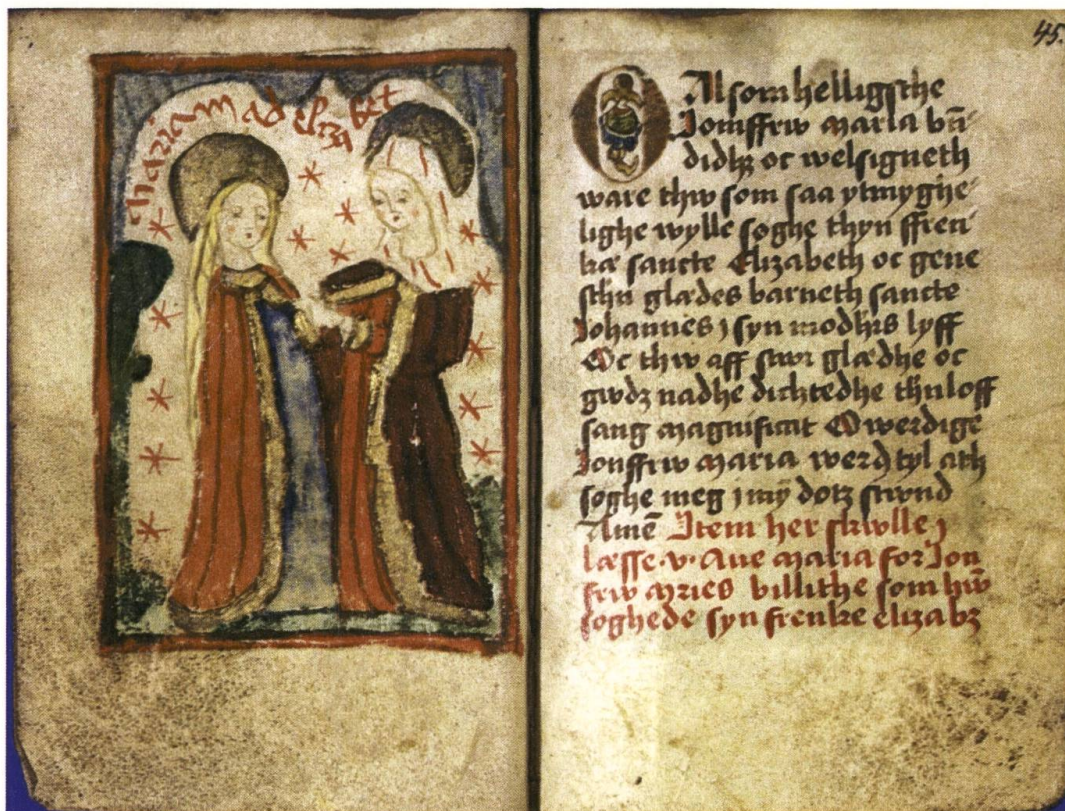 maria mad elizabet
45.
O Alsom helligsthe
Jomffrw maria bn̄
didhz oc welsigneth
ware thw som saa ytmyghe-
lighe wylle søghe thyn ffren
kæ sancte Elizabeth oc gene
sthn glædes barneth sancte
Johannes j syn modhrs lyff
Oc thw aff stwr glædhe oc
gwdz nadhe dichtedhe thn loff
sang magnificat O werdige
Jonffrw maria werd tyl ath
søghe meg j my̅ dotz stwnd
Ame̅ Item her skwlle j
læsse .v. Aue maria for Jon
frw mries billithe som hw̅
søghede syn frenke elizabz